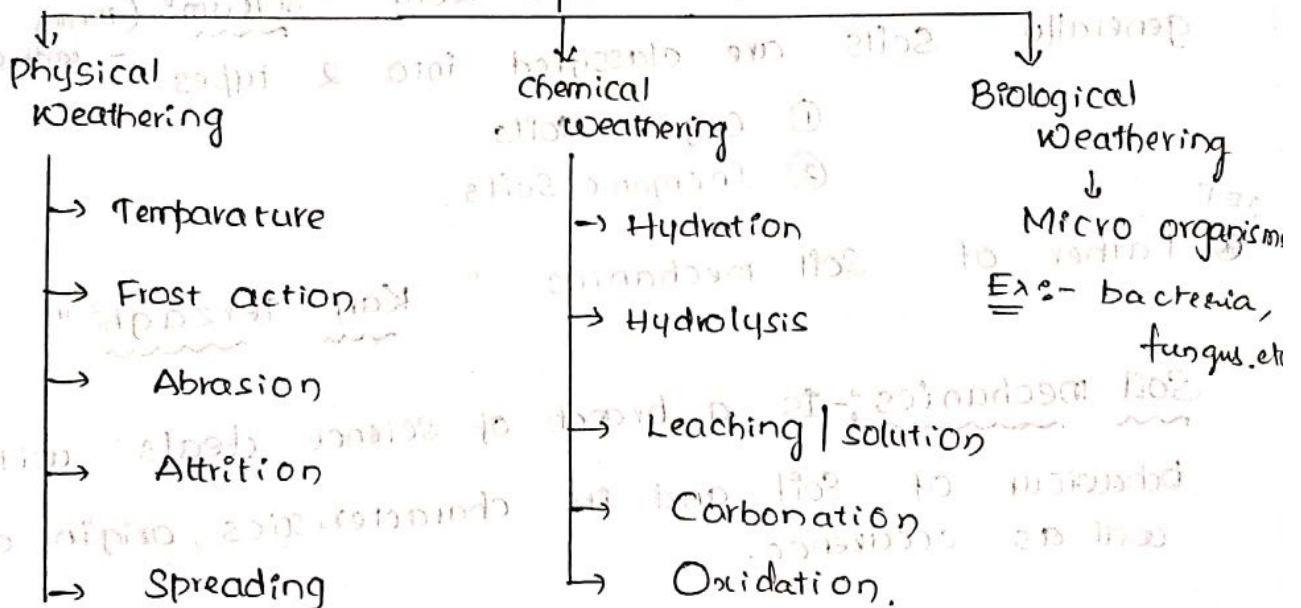 Physical
Weathering
→ Temparature
→ Frost action
→ Abrasion
→ Attrition
→ Spreading
Chemical
Weathering
→ Hydration
→ Hydrolysis
→ Leaching | solution
→ Carbonation
→ Oxidation.
Biological
Weathering
↓
Micro organism
Ex:- bacteria,
fungus.etc